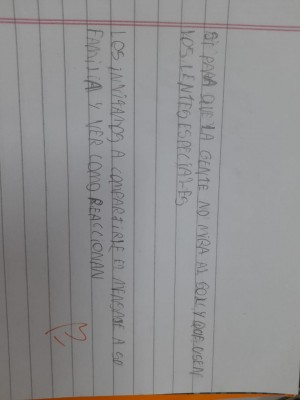 B) PARA QUE LA GENTE NO MIRA AL SOL Y QUE USEN
LOS LENTES ESPECIALES
LOS INVITAMOS A COMPARTIRLE EL MENSAJE A SU
FAMILIA Y VER COMO REACCIONAN